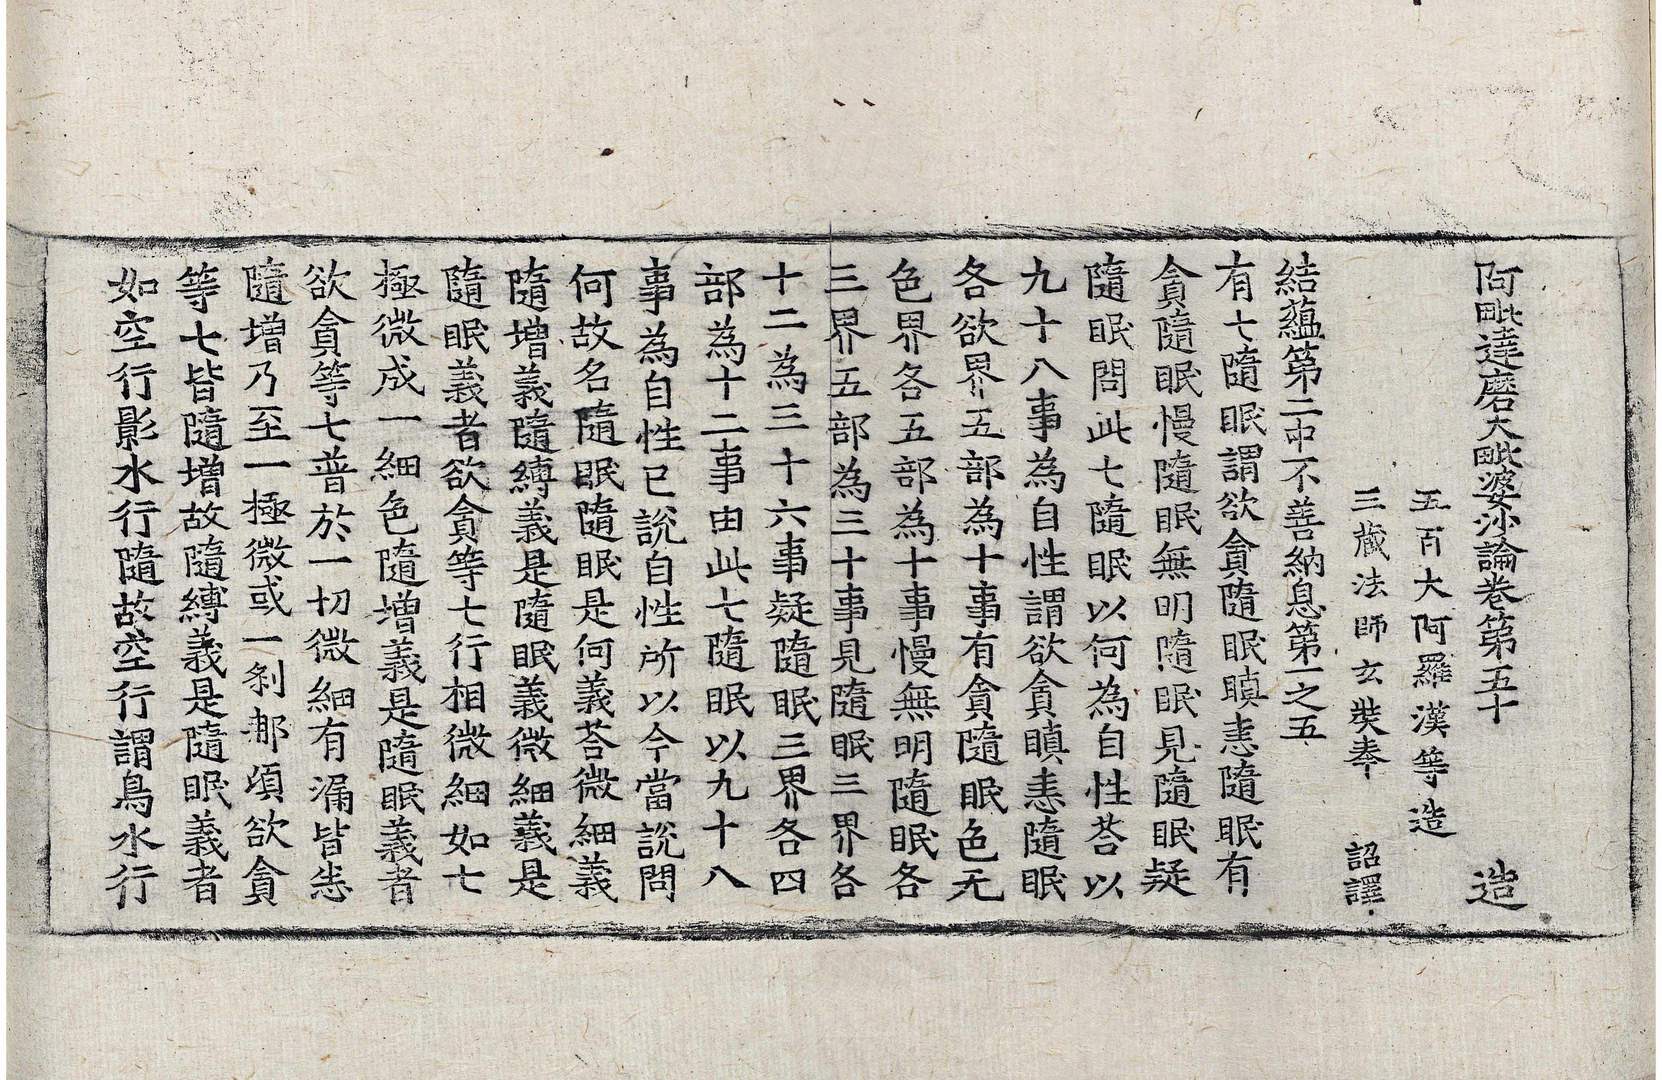 阿毗達磨大毗婆沙論卷第五十 造
五百大阿羅漢等造
三藏法師玄奘奉 詔譯
結蘊第二中不善納息第一之五
有七隨眠謂欲貪隨眠瞋恚隨眠有
貪隨眠慢隨眠無明隨眠見隨眠疑
隨眠問此七隨眠以何為自性荅以
九十八事為自性謂欲貪瞋恚隨眠
各欲界五部為十事有貪隨眠色无
色界各五部為十事慢無明隨眠各
三界五部為三十事見隨眠三界各
十二為三十六事疑隨眠三界各四
部為十二事由此七隨眠以九十八
事為自性已說自性所以今當說問
何故名隨眠隨眠是何義荅微細義
隨增義隨縛義是隨眠義微細義是
隨眠義者欲貪等七行相微細如七
極微成一細色隨增義是隨眠義者
欲貪等七普於一切微細有漏皆悉
隨增乃至一極微或一剎那頃欲貪
等七皆隨增故隨縛義是隨眠義者
如空行影水行隨故空行謂鳥水行